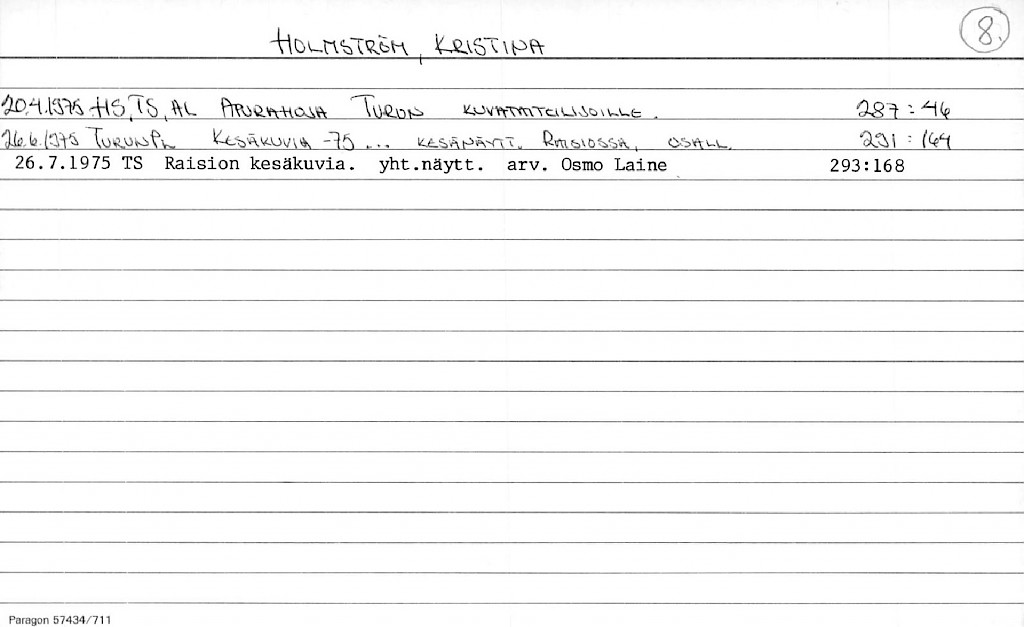 HOLMSTRÖM, KRISTINA
8.
20.4.1975 HS, TS, AL APURAHOJA TURUN KUVATAITEILIJOILLE. 287:46
26.6.1975 TURUNP. KESÄKUVIA -75 ... KESÄNÄYTT. RAISIOSSA, OSALL. 291:164
26.7.1975 TS Raision kesäkuvia. yht.näytt. arv. Osmo Laine 293:168
Paragon 57434/711